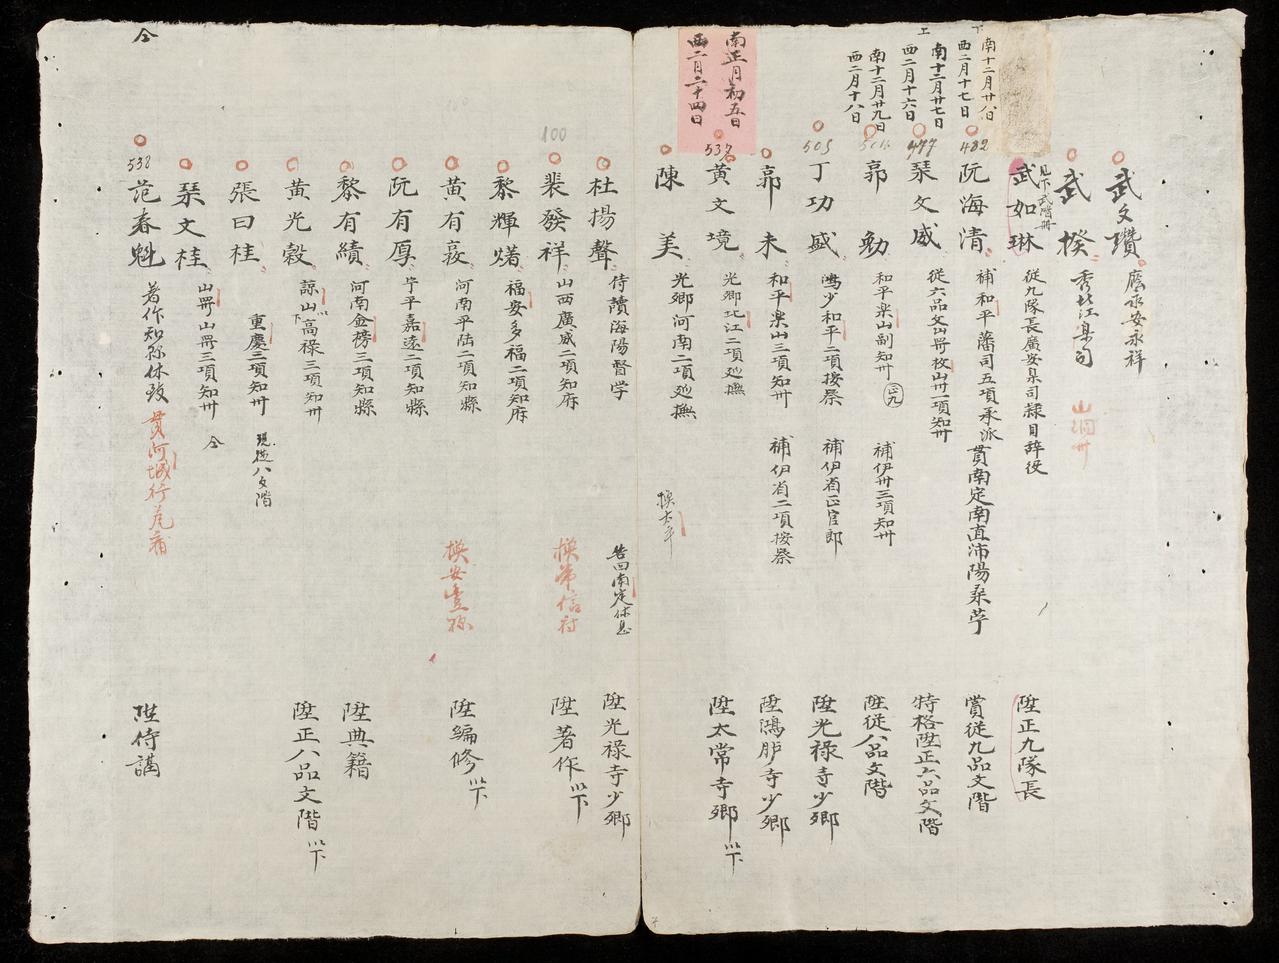 武文瓚 廕永安永祥
武揆 秀北江臬司 山洞卅
見下武階冊
武如琳 從九隊長廣安臬司隸目辞役 陞正九隊長
南十二月廿八日
西二月十七日
482
阮海清 補和平藩司五項承派貫南定南直沛陽桑苧 賞從九品文階
南十二月廿七日
西二月十六日
477
琹文威 從六品文 一項知卅 特格陞正六品文階
南十二月廿九日
西二月十八日
郭勄 和平楽山副知卅 正九 補伊卅三項知卅 陞從八品文階
505
丁功盛 鴻少和平二項按察 補伊省正官郎 陞光禄寺少鄉
郭未 和平楽山三項知卅 補伊省二項按察 陞鴻胪寺少鄉
南正月初五日
西二月二十四日
537
黃文境 光鄉北江二項巡撫 陞太常寺鄉 以下
陳美 光鄉河南二項巡撫 換太平
杜揚聲 侍讀海陽督学 告回南定休息 陞光禄寺少鄉
100
裴發祥 山西廣威二項知府 換常信府 陞著作 以下
黎輝𤏸 福安多福二項知府
100
黃有 河南平陸二項知縣 換安 陞編修 以下
阮有厚 宁平嘉遠二項知縣
黎有績 河南金榜三項知縣 陞典籍
黃光穀 諒山高禄三項知卅 陞正八品文階 以下
張曰桂 重慶三項知卅 現從八文階
琹文桂 山 山 三項知卅 仝
仝
538
范春魁 著作知 休致 貫河城行 陞侍講